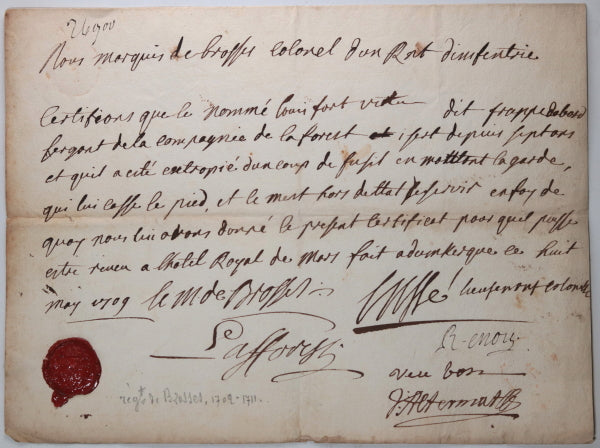 Nous marquis de brosses colonel dun Rnt dinfentrie
Certifions que le nommé louis fort dit frappe dabord
sergant de la compagnie de la forest sert depuis sept ans
et quil a esté estropié dun coup de fusil en mettant la garde,
qui lui casse le pied, et le mest hors destat de servir en foy de
quoy nous lui avons donné le present Certificat pour quil puisse
estre receu a lhotel Royal de Mars fait a dunkerque ce huit
may 1709 le M de Brosses
lieutenant colonel
veu bon
régt de Brosses, 1702-1711.